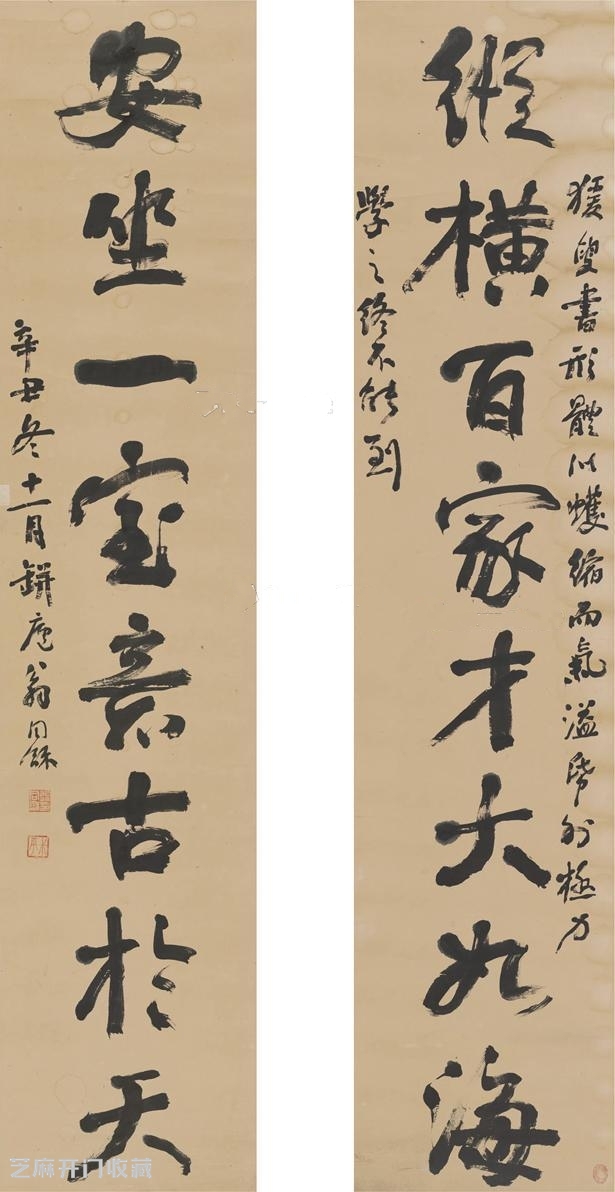 猨叟書形體似蠖縮而氣溢帋外極力
縱橫百家才大如海
學之終不能到
安坐一室意古於天
辛丑冬十一月缾廬翁同龢
芝麻开门收藏